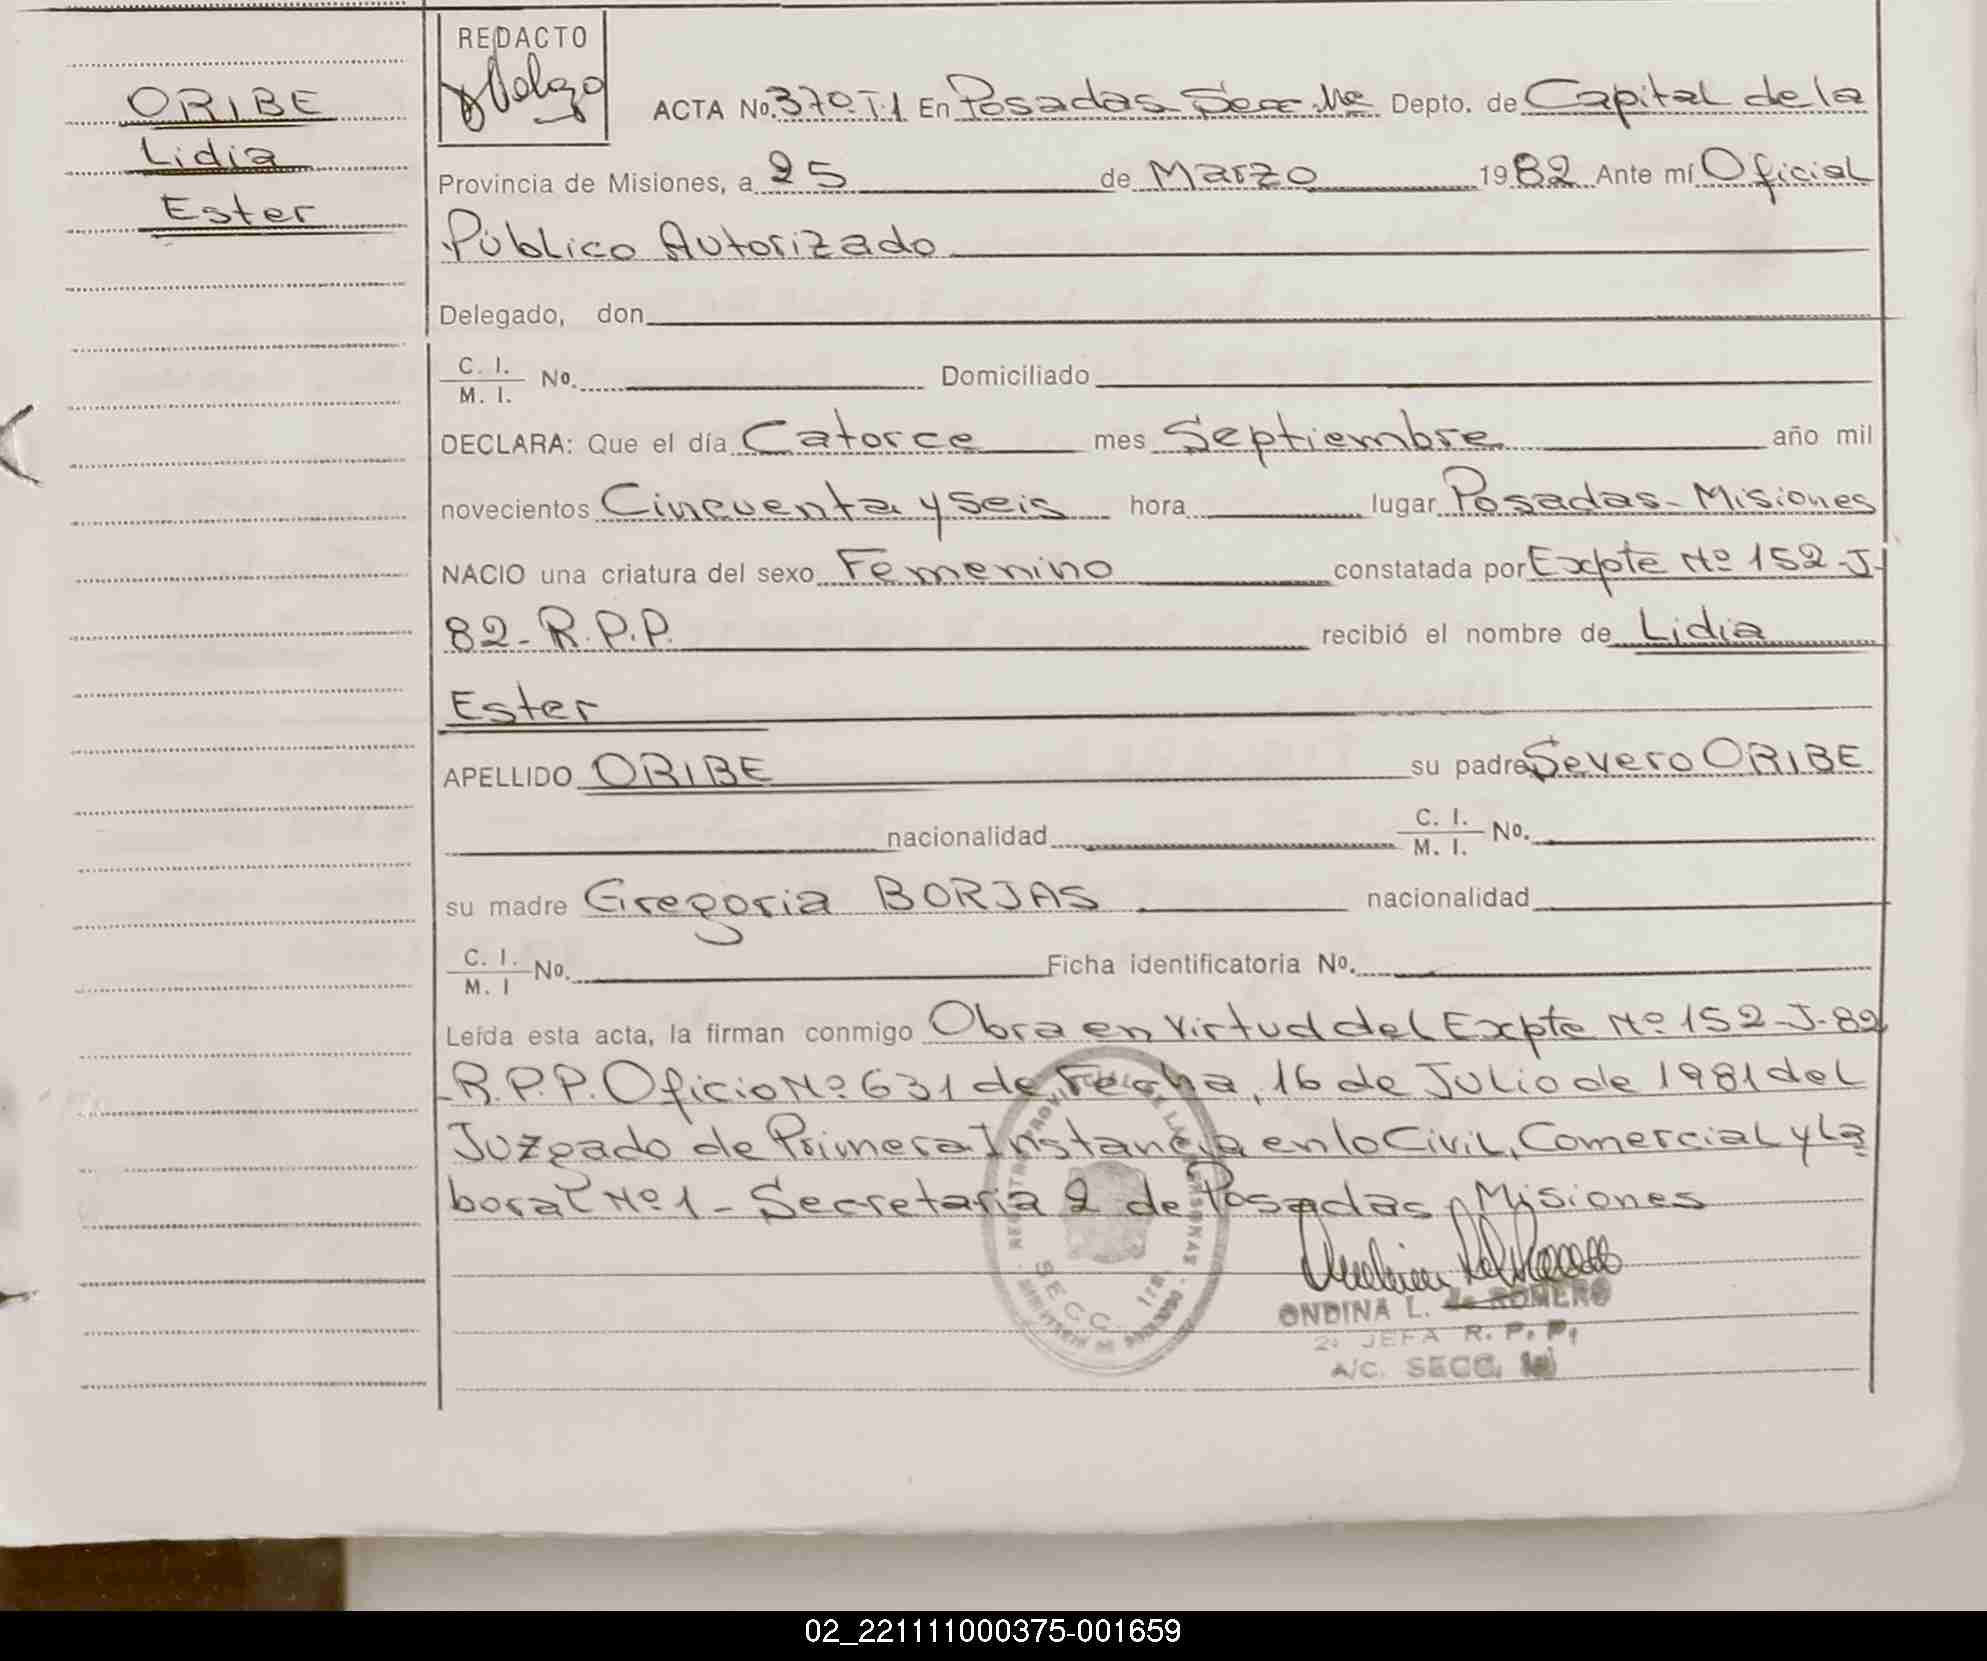 ORIBE
Lidia
Ester
REDACTO
ACTA No. 370-T.1 En Posadas Secc. 1ra Depto. de Capital de la
Provincia de Misiones, a 25 de Marzo 1982 Ante mí Oficial
Público Autorizado
Delegado, don
C. I.
M. I. No. Domiciliado
DECLARA: Que el día Catorce mes Septiembre año mil
novecientos Cincuenta y seis hora lugar Posadas - Misiones
NACIO una criatura del sexo Femenino constatada por Expte Nº 152-J-
82-R.P.P. recibió el nombre de Lidia
Ester
APELLIDO ORIBE su padre Severo ORIBE
nacionalidad C. I.
M. I. No.
su madre Gregoria BORJAS nacionalidad
C. I.
M. I No. Ficha identificatoria No.
Leída esta acta, la firman conmigo Obra en virtud del Expte Nº 152-J-82
R.P.P. Oficio Nº 631 de Fecha, 16 de Julio de 1981 del
Juzgado de Primera Instancia en lo Civil, Comercial y La
boral Nº 1 - Secretaria 2 de Posadas, Misiones
REGISTRO PROVINCIAL DE LAS PERSONAS
SECC. 1ra.
ONDINA L. de ROMERO
2: JEFA R. P. P.
A/C. SECC.
02_221111000375-001659